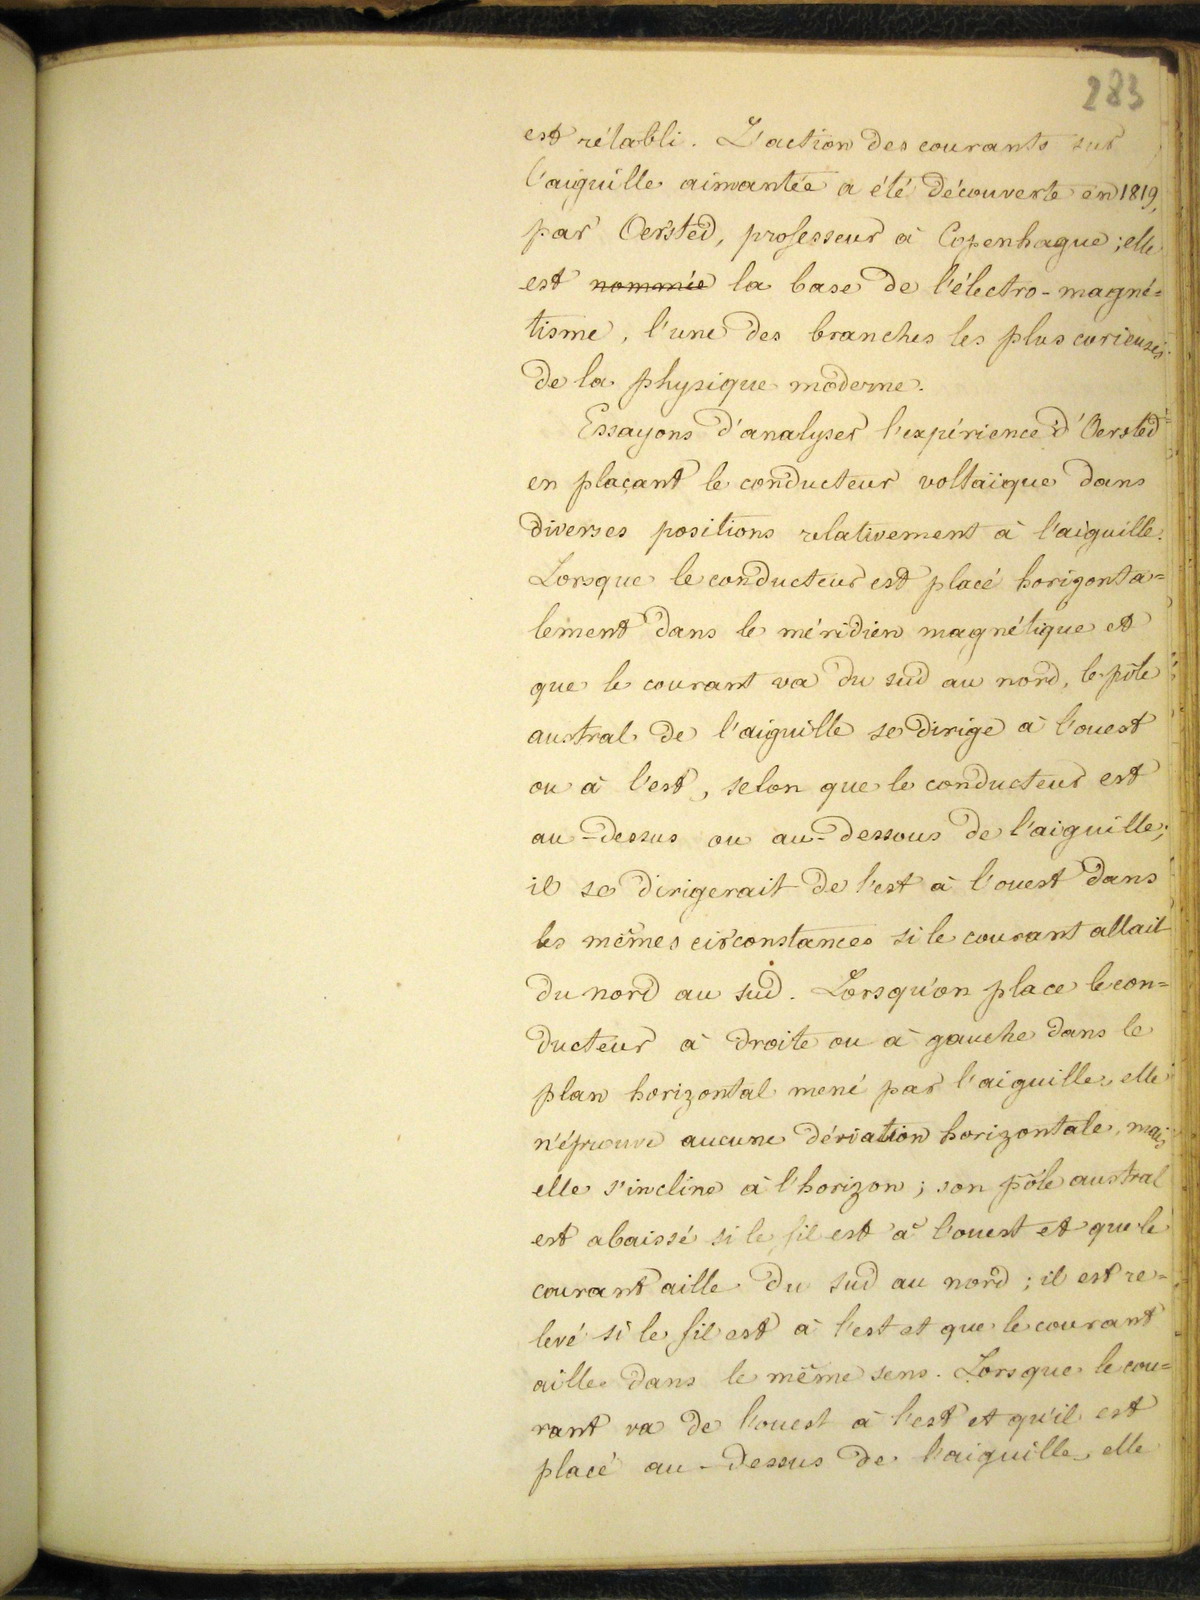 283
est rétabli. L'action des courants sur
l'aiguille aimantée a été découverte en 1819,
par Oersted, professeur à Copenhague ; elle
est nommée la base de l'électro-magné=
tisme, l'une des branches les plus curieuses
de la physique moderne.
Essayons d'analyser l'expérience d'Oersted
en plaçant le conducteur voltaïque dans
diverses positions relativement à l'aiguille.
Lorsque le conducteur est placé horizonta=
lement dans le méridien magnétique et
que le courant va du sud au nord, le pôle
austral de l'aiguille se dirige à l'ouest
ou à l'est, selon que le conducteur est
au-dessus ou au-dessous de l'aiguille;
il se dirigerait de l'est à l'ouest dans
les mêmes circonstances si le courant allait
du nord au sud. Lorsqu'on place le con=
ducteur à droite ou à gauche dans le
plan horizontal mené par l'aiguille, elle
n'éprouve aucune déviation horizontale, mais
elle s'incline à l'horizon ; son pôle austral
est abaissé si le fil est à l'ouest et que le
courant aille du sud au nord ; il est re=
levé si le fil est à l'est et que le courant
aille dans le même sens. Lorsque le cou=
rant va de l'ouest à l'est et qu'il est
placé au-dessus de l'aiguille, elle